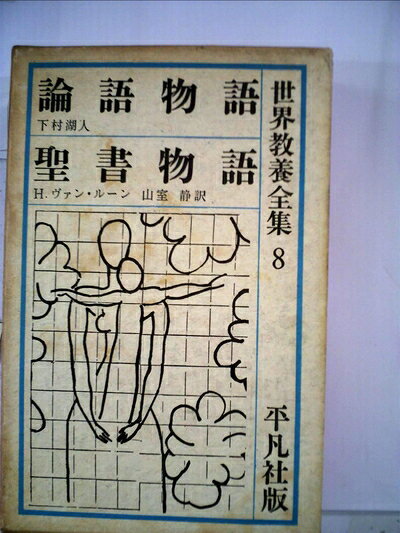 論語物語
下村湖人
聖書物語
H.ヴァン・ルーン 山室 静訳
世界教養全集 8
平凡社版